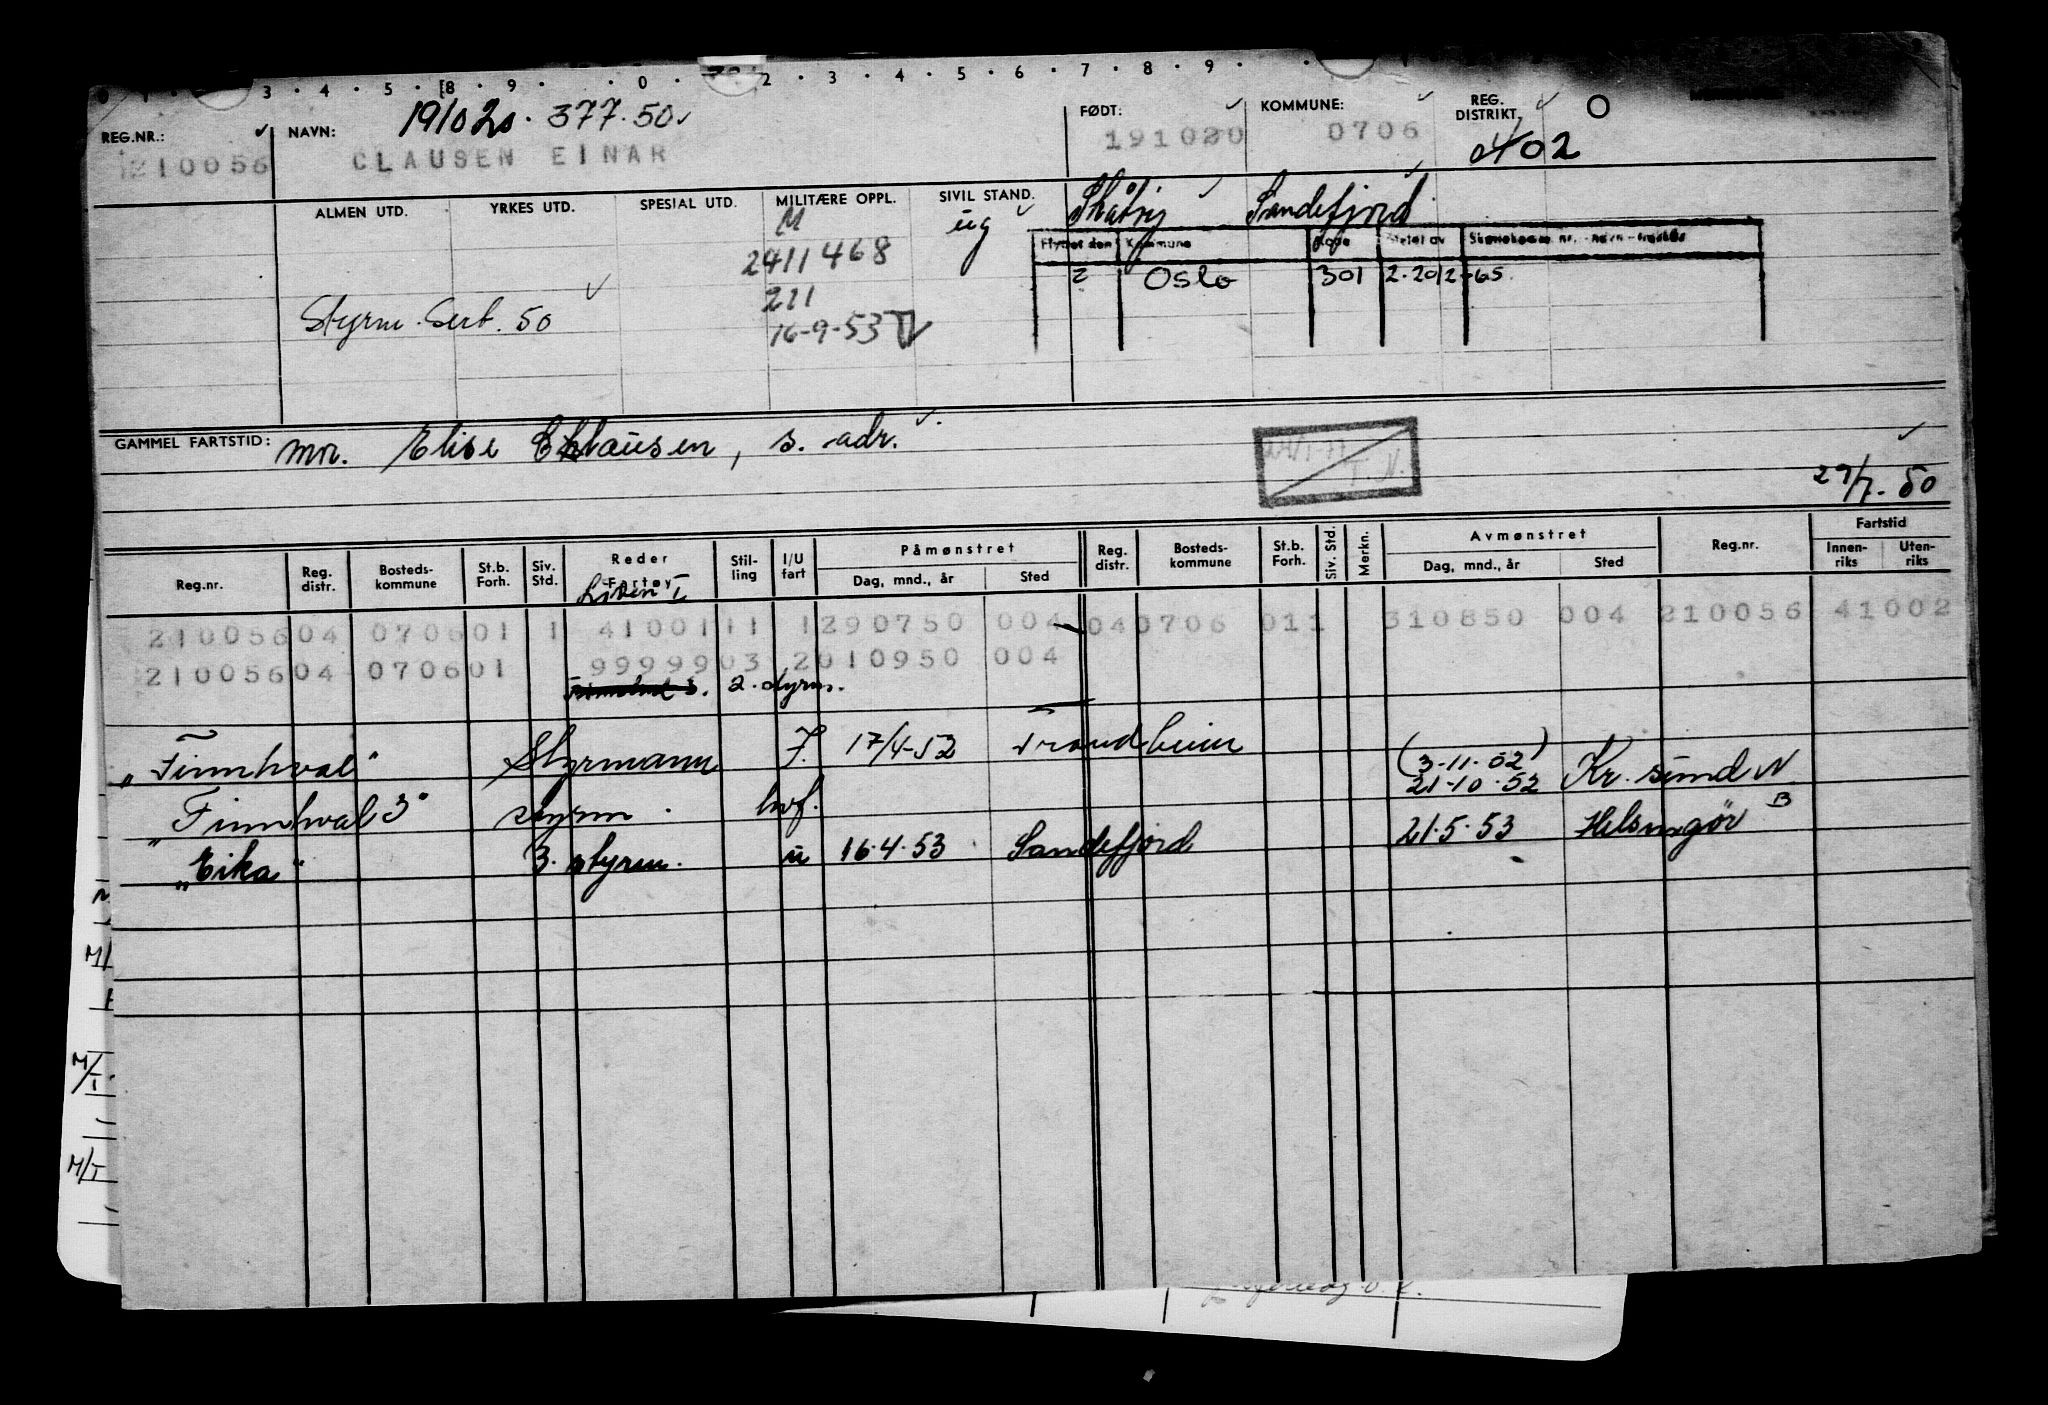 3 · 4 · 5 · 8 · 9 · · 0 · 2 · 3 · 4 · 5 · 6 · 7 · 8 · 9 ·
REG.NR.: NAVN: 191020. 377.50 FØDT: KOMMUNE: REG. DISTRIKT O
210056 CLAUSEN EINAR 191020 0706 402
ALMEN UTD. YRKES UTD. SPESIAL UTD. MILITÆRE OPPL. SIVIL STAND.
M ug Skåtøy Sandefjord
2411468
Flyttet den Kommune Kode Meldt av
2 Oslo 301 2-2012-65
211
Styrm. Sert. 50 16-9-53
GAMMEL FARTSTID: mor. Elise Clausen, s. adr.
T. N.
29/7-50
Reg.nr. Reg. distr. Bosteds-kommune St.b. Forh. Siv. Std. Reder Fartøy Stil-ling I/U fart Påmønstret Dag, mnd., år Sted Reg. distr. Bosteds-kommune St.b. Forh. Siv. Std. Merkn. Avmønstret Dag, mnd., år Sted Reg.nr. Fartstid Innen-riks Uten-riks
210056 04 0706 01 1 41001 11 1 290750 004 04 0706 01 11 310850 004 210056 41002
210056 04 0706 01 99999 03 2 010950 004
2. styrm.
"Finnhval" Styrmann I. 17/4-52 Trondheim (3-11-02)
21-10-52 Kr.sund N
"Finnhval 3" styrm. hvf.
"Eika" 3. styrm. u 16.4.53 Sandefjord 21.5.53 Helsingør B
M/
M/I
M/I